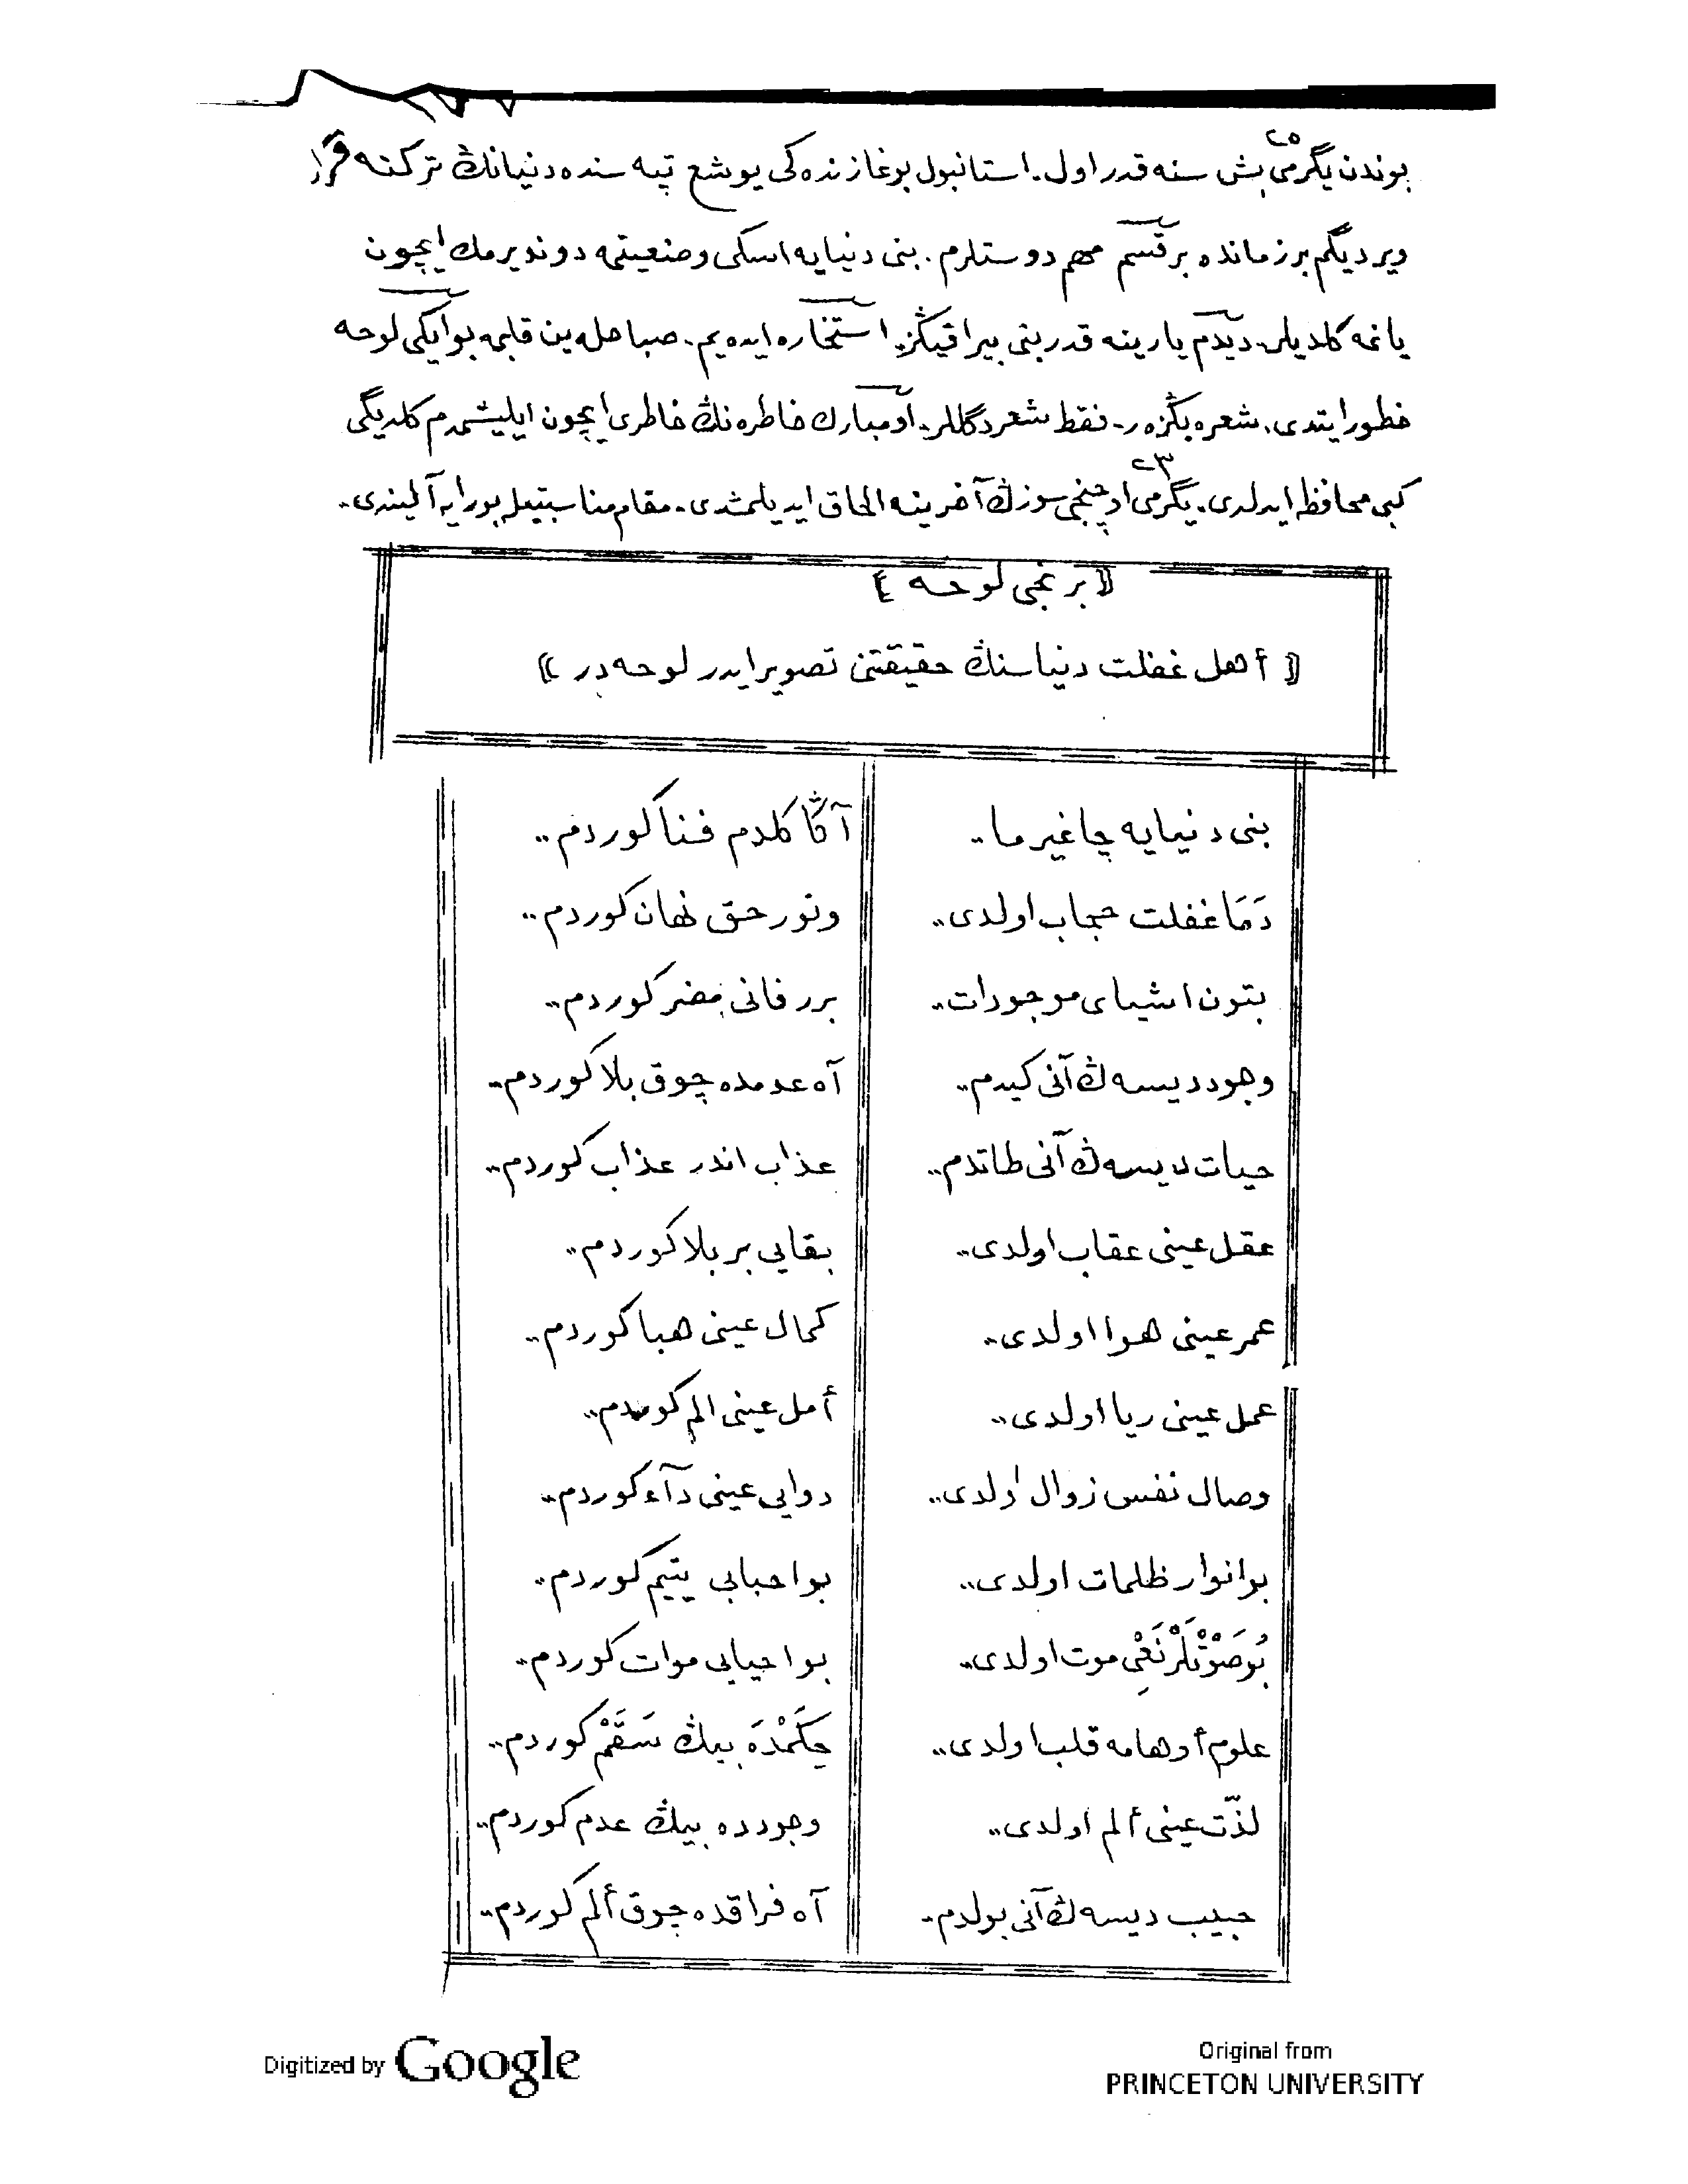 ٢٥
بوندن يگرمى بش سنه قدر اول. استانبول بوغازنده كى يوشع تپه سنده دنيانڭ تركنه قرار
ويرديگم بر زمانده بر قسم مهم دوستلرم. بنى دنيايه اسكى وضعيتمه دونديرمك ايچون
يانمه كلديلر. ديدم يارينه قدر بنى بيراقيڭز. استخاره ايده يم. صباحله ين قلبمه بو ايكى لوحه
خطور ايتدى. شعره بڭزه ر. فقط شعر دگللر. او مبارك خاطره نڭ خاطرى ايچون ايليشمدم كلديگى
٢٣
كبى محافظه ايدلدى. يگرمى اوچنجى سوزڭ آخرينه الحاق ايديلمشدى. مقام مناسبتيله بورايه آليندى.
﴿ برنجى لوحه ﴾
﴿ أهل غفلت دنياسنڭ حقيقتنى تصوير ايدر لوحه در ﴾
بنى دنيايه چاغيرما.. آڭا كلدم فنا كوردم..
دَمَا غفلت حجاب اولدى.. و نور حق نهان كوردم..
بتون اشياى موجودات.. برر فانى مضر كوردم..
وجود ديسه ڭ آنى كيدم.. آه عدمده چوق بلا كوردم..
حيات ديسه ڭ آنى طاتدم.. عذاب اندر عذاب كوردم..
عقل عينى عقاب اولدى.. بقايى بر بلا كوردم..
عمر عينى هوا اولدى.. كمال عينى هبا كوردم..
عمل عينى ريا اولدى.. أمل عينى الم كوردم..
وصال نفس زوال اولدى.. دوايى عينى دآء كوردم..
بو انوار ظلمات اولدى.. بو احبابى يتيم كوردم..
بُو صَوْتْلَرْ نَعْىِ موت اولدى.. بو احيايى موات كوردم..
علوم أوهامه قلب اولدى.. حِكَمْدَه بيڭ سَقَمْ كوردم..
لذّت عينى ألم اولدى.. وجودده بيڭ عدم كوردم..
حبيب ديسه ڭ آنى بولدم.. آه فراقده چوق ألم كوردم..
Digitized by Google
Original from
PRINCETON UNIVERSITY